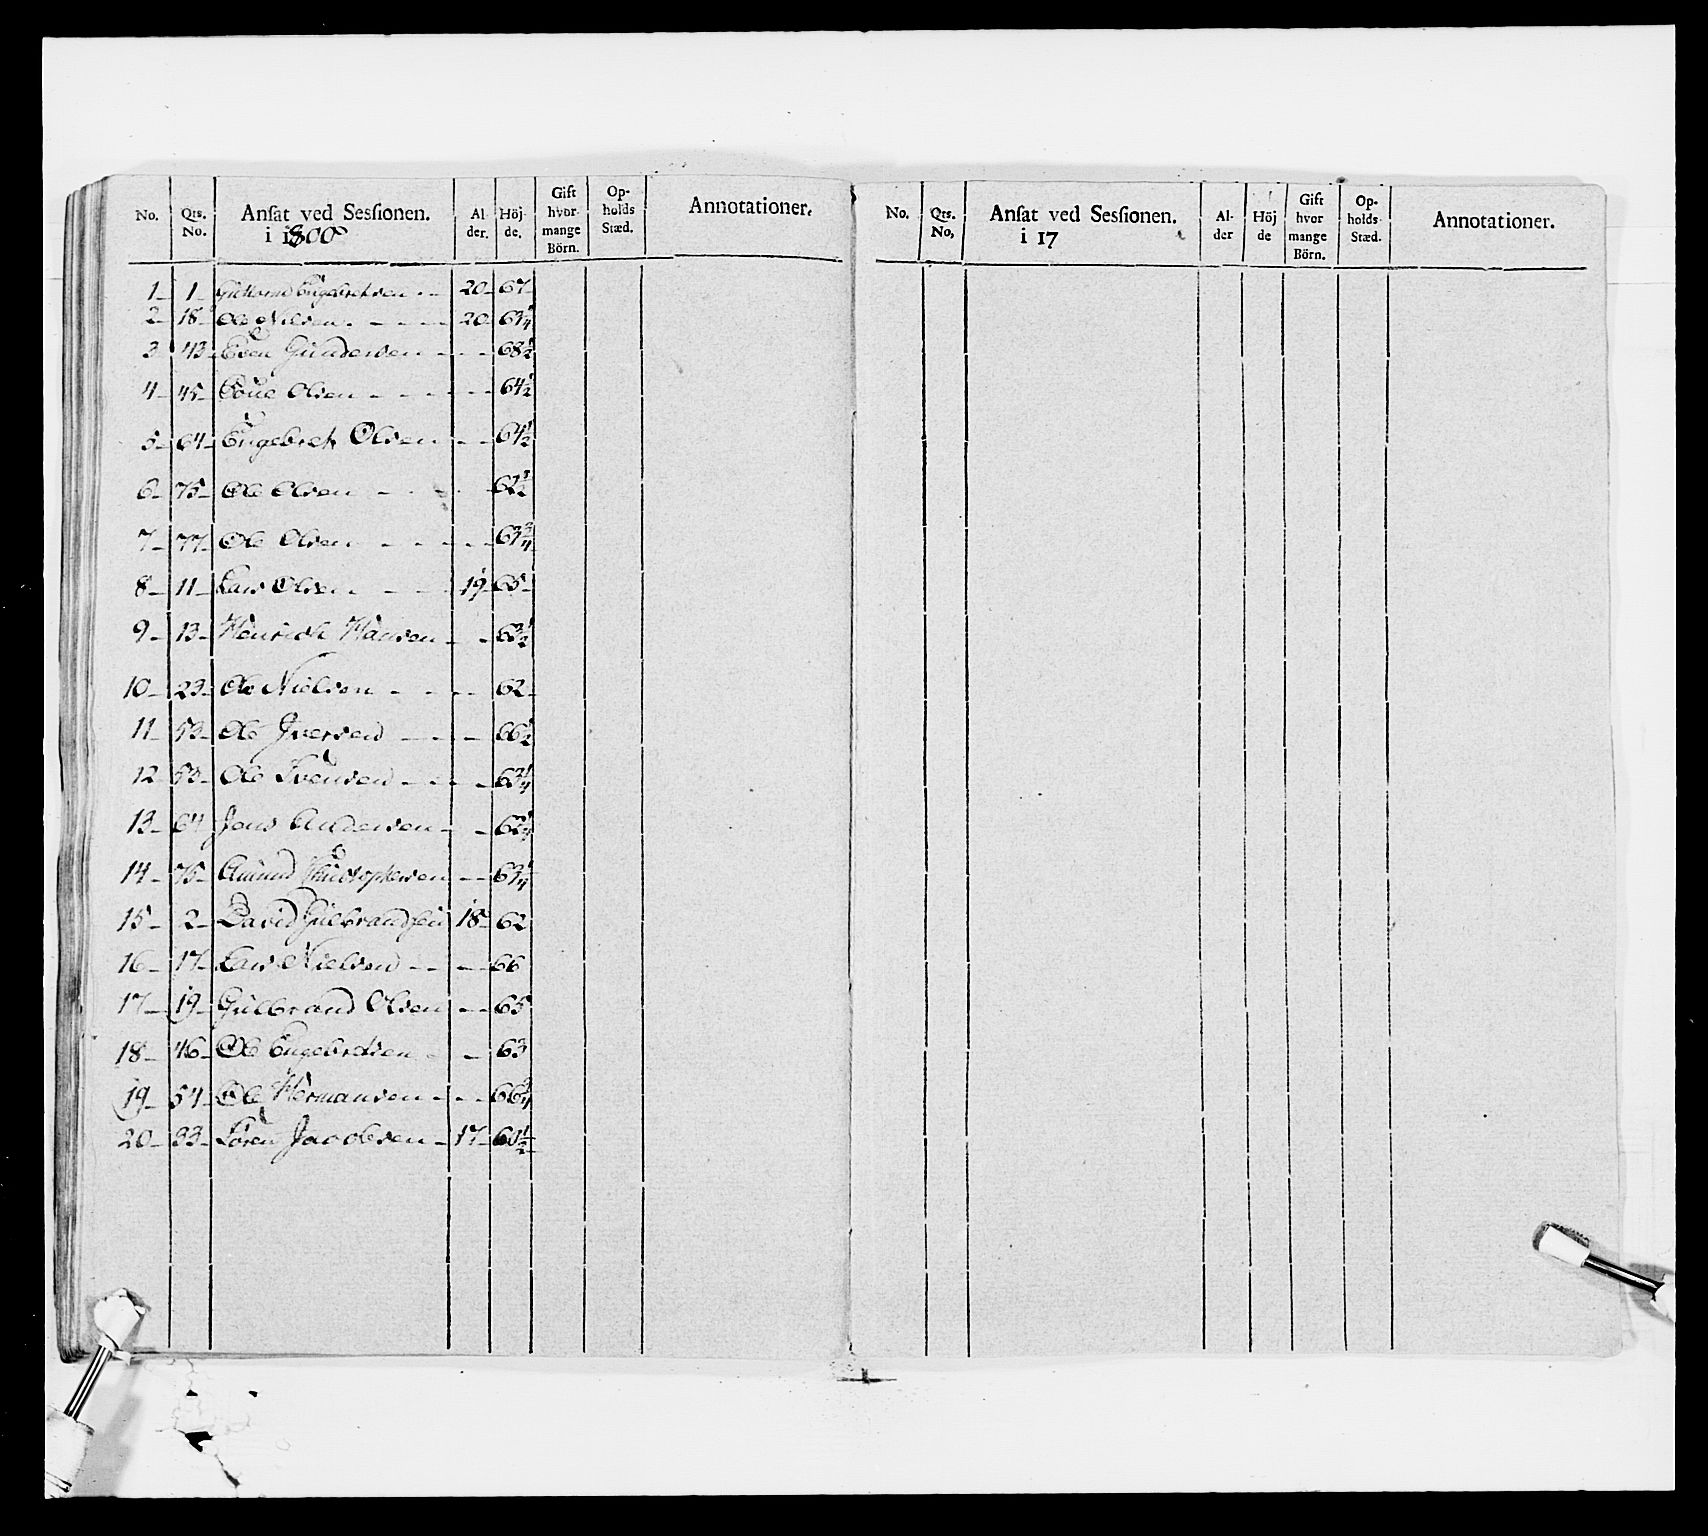 No. Qrs. No. Anſat ved Sesſionen. i 1800 Al- der. Höj- de. Gift hvor- mange Börn. Op- holds Stæd. Annotationer.
1 1 Guttorm Engebretsen 20 67
2 18 Ole Nilsen 20 63 1/4
3 43 Even Gundersen 68 1/2
4 45 Olsen 64 1/2
5 64 Engebret Olsen 64 1/2
6 75 Ole Olsen 62 1/2
7 77 Ole Olsen 63 3/4
8 11 Lars Olsen 19 65
9 13 Henrich Hansen 63 1/2
10 23 Ole Nielsen 62
11 53 Ole Jversen 66 1/2
12 53 Ole Svensen 63 1/4
13 64 Jens Andersen
14 75 Amund Christophersen 63 1/4
15 2 David Gulbrandsen 18 62
16 17 Lars Nielsen 66
17 19 Gulbrand Olsen 65
18 46 Ole Engebretsen 63
19 54 Ole Hermansen 66 3/4
20 33 Sören Jacobsen 17 60 1/2
No. Qrs. No. Anſat ved Sesſionen. i 17 Al- der Höj de Gift hvor mange Börn. Op- holds- Stæd. Annotationer.